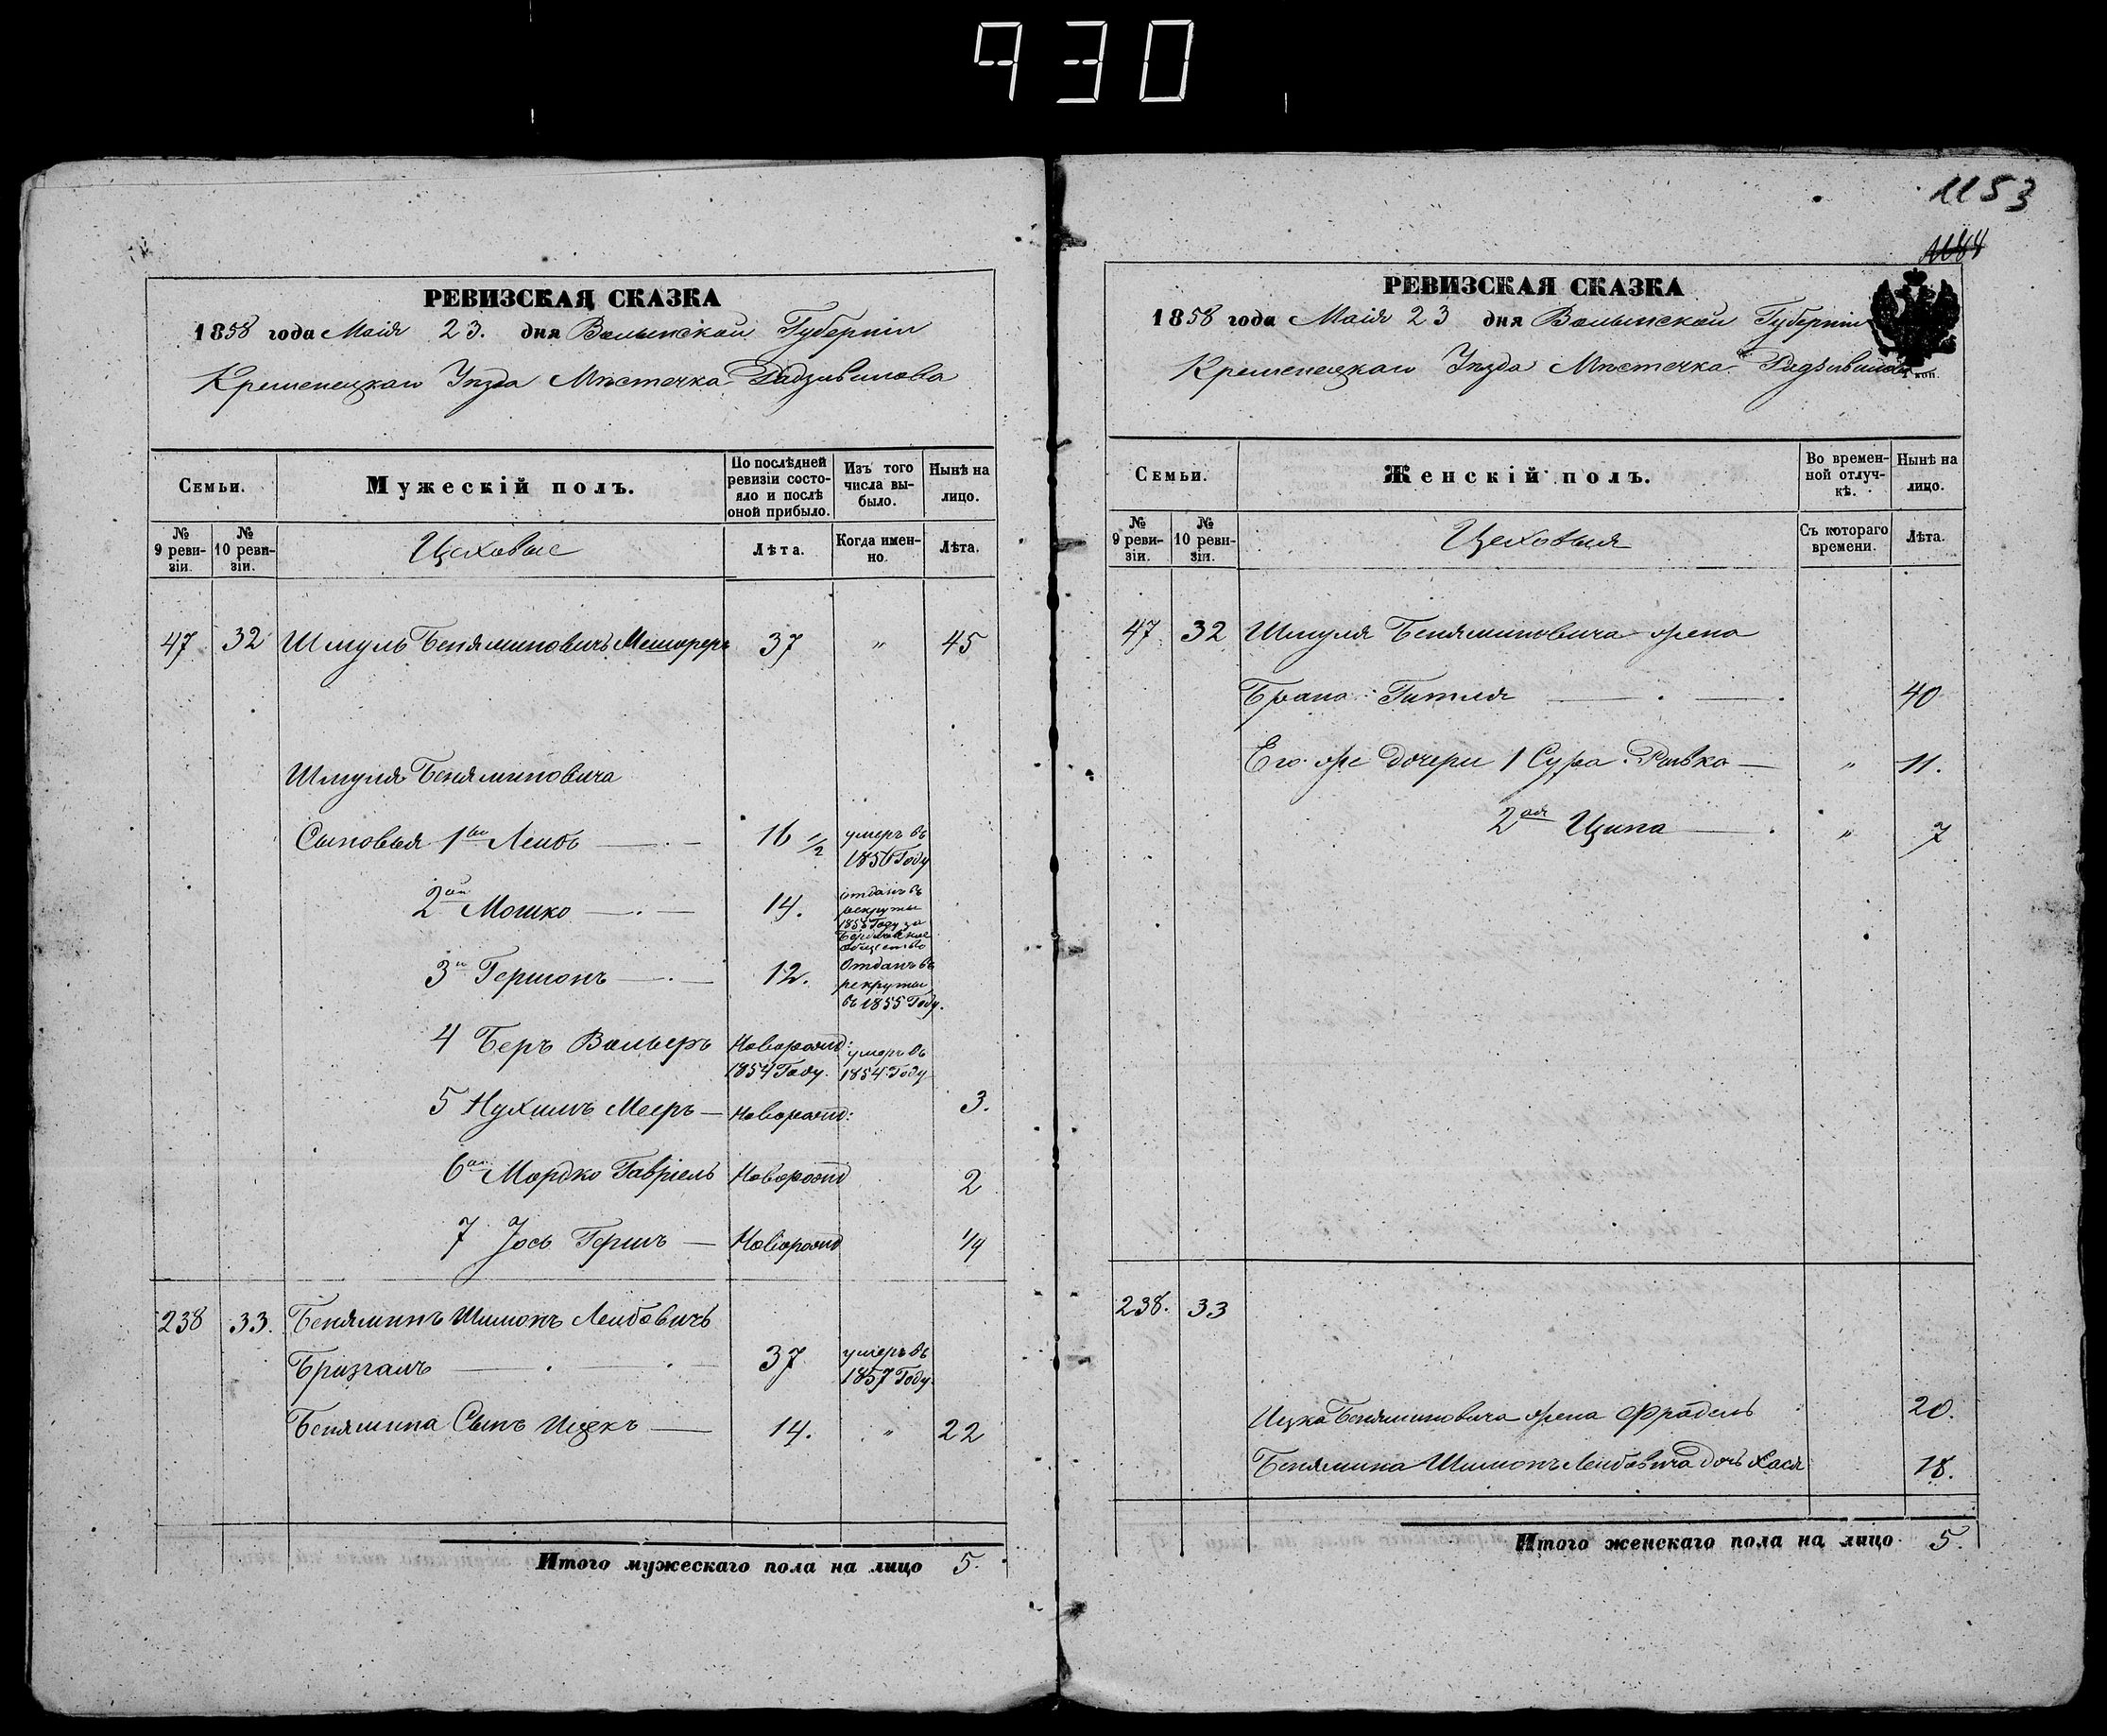 930
1153
РЕВИЗСКАЯ СКАЗКА
1858 года Маія 23. дня Волынской Губерніи
Кременецкаго Уѣзда Мѣстечка Радзивилова
Семьи.
Мужескій полъ.
По послѣдней ревизіи состояло и послѣ оной прибыло.
Изъ того числа выбыло.
Нынѣ на лицо.
№ 9 ревизіи.
№ 10 ревизіи.
Цеховые
Лѣта.
Когда именно.
Лѣта.
47 32 Шмуль Беняминовичъ Мешореръ 37 " 45
Шмуля Беняминовича
Сыновья 1ый Лейбъ — 16 1/2 умеръ въ 1856 Году
2ой Мошко — 14. отданъ въ рекруты 1855 Году за общество
3й Гершонъ — 12. Отданъ въ рекруты въ 1855 Году.
4 Беръ Вольверъ Наворожд: 1854 Году. умеръ въ 1854 Году
5 Нухимъ Мееръ — Наворожд: 3.
6ой Мордко Гавріель Наворожд 2
7 Іось Гершъ — Наворожд 1/4
238 33. Беняминъ Шимонъ Лейбовичъ
Бризгалъ — 37 умеръ въ 1857 Году.
Бенямина Сынъ Ицекъ — 14. " 22
Итого мужескаго пола на лицо 5.
РЕВИЗСКАЯ СКАЗКА
1858 года Маія 23 дня Волынской Губерніи
Кременецкаго Уѣзда Мѣстечка Радзивилова
Семьи.
Женскій полъ.
Во временной отлучкѣ.
Нынѣ на лицо.
№ 9 ревизіи.
№ 10 ревизіи.
Цеховыя
Съ котораго времени.
Лѣта.
47 32 Шмуля Беняминовича жена
Брана Гитля — 40
Его же дочери 1 Сура Ривка — " 11.
2ая Ципа — " 7
238. 33
Ицка Беняминовича жена Фрадель 20.
Бенямина Шимонъ Лейбовича дочь Хася 18.
Итого женскаго пола на лицо 5.